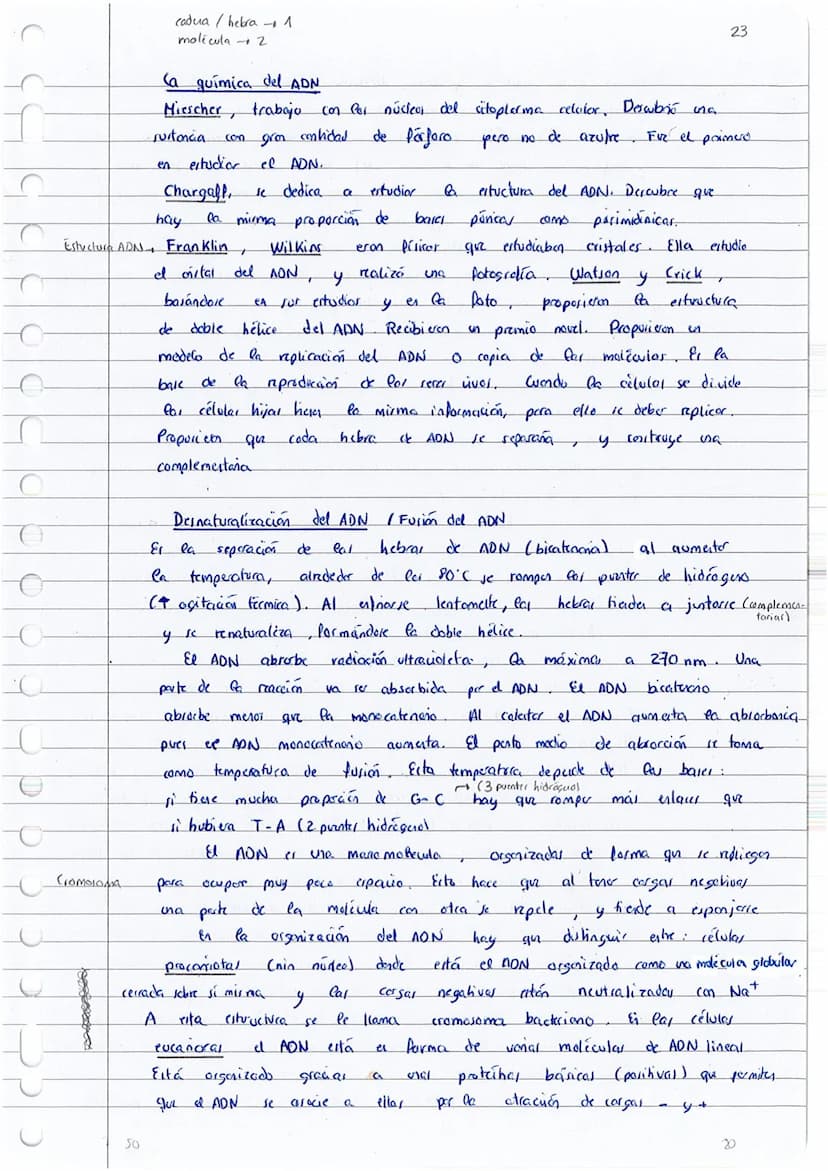 cadena / hebra → 1
molécula → 2
23
La química del ADN
Miescher, trabajo con los núcleos del citoplasma celular. Descubrió una
sustancia con gran cantidad de fósforo pero no de azufre. Fue el primero
en estudiar el ADN.
Chargaff, se dedica a estudiar la estructura del ADN. Descubre que
hay la misma proporción de bases púricas como pirimidínicas.
Estuctura ADN → Franklin, Wilkins eran físicos que estudiaban cristales. Ella estudio
el cristal del ADN, y realizó una fotografía. Watson y Crick,
basándose en sus estudios y en la foto, proposieron la estructura
de doble hélice del ADN. Recibieron un premio novel. Propusieron un
modelo de la replicación del ADN o copia de las moléculas. Es la
base de la reproducción de los seres vivos. Cuando las células se divide
las células hijas tienen la misma información, para ello se deben replicar.
Proponen que cada hebra de ADN se separaría, y construye una
complementaria
Desnaturalización del ADN / Fusión del ADN
Es la separación de las hebras de ADN (bicatenaria) al aumentar
la temperatura, alrededor de los 80°C se rompen los puentes de hidrógeno
(↑ agitación térmica). Al enfriarse lentamente, las hebras tienden a juntarse (complemen-
tarias)
y se renaturaliza, formándose la doble hélice.
El ADN absorbe radiación ultravioleta, la máxima a 270 nm. Una
parte de la reacción va ser absorbida por el ADN. El ADN bicatenario
absorbe menos que la monocatenario. Al calentar el ADN aumenta la absorbancia
pues el ADN monocatenario aumenta. El punto medio de absorción se toma
como temperatura de fusión. Esta temperatura depende de las bases:
→ (3 puentes hidrógeno)
si tiene mucha proporción de G-C hay que romper más enlaces que
si hubiera T-A (2 puentes hidrógeno)
El ADN es una macromolécula, organizadas de forma que se repliegan
Cromosoma para ocupar muy poco espacio. Esto hace que al tener cargas negativas
una parte de la molécula con otra se repele, y tiende a esponjarse
En la organización del ADN hay que distinguir entre: células
procariotas (nin núcleo) donde está el ADN organizado como una molécula globular
cerrada sobre sí misma y las cargas negativas están neutralizadas con Na+
A esta estructura se le llama cromosoma bacteriano. En las células
eucariotas el ADN está en forma de varias moléculas de ADN lineal
Está organizado gracias a unas proteínas básicas (positivas) que permiten
que el ADN se asocie a ellas por la atracción de cargas - y +
50
20